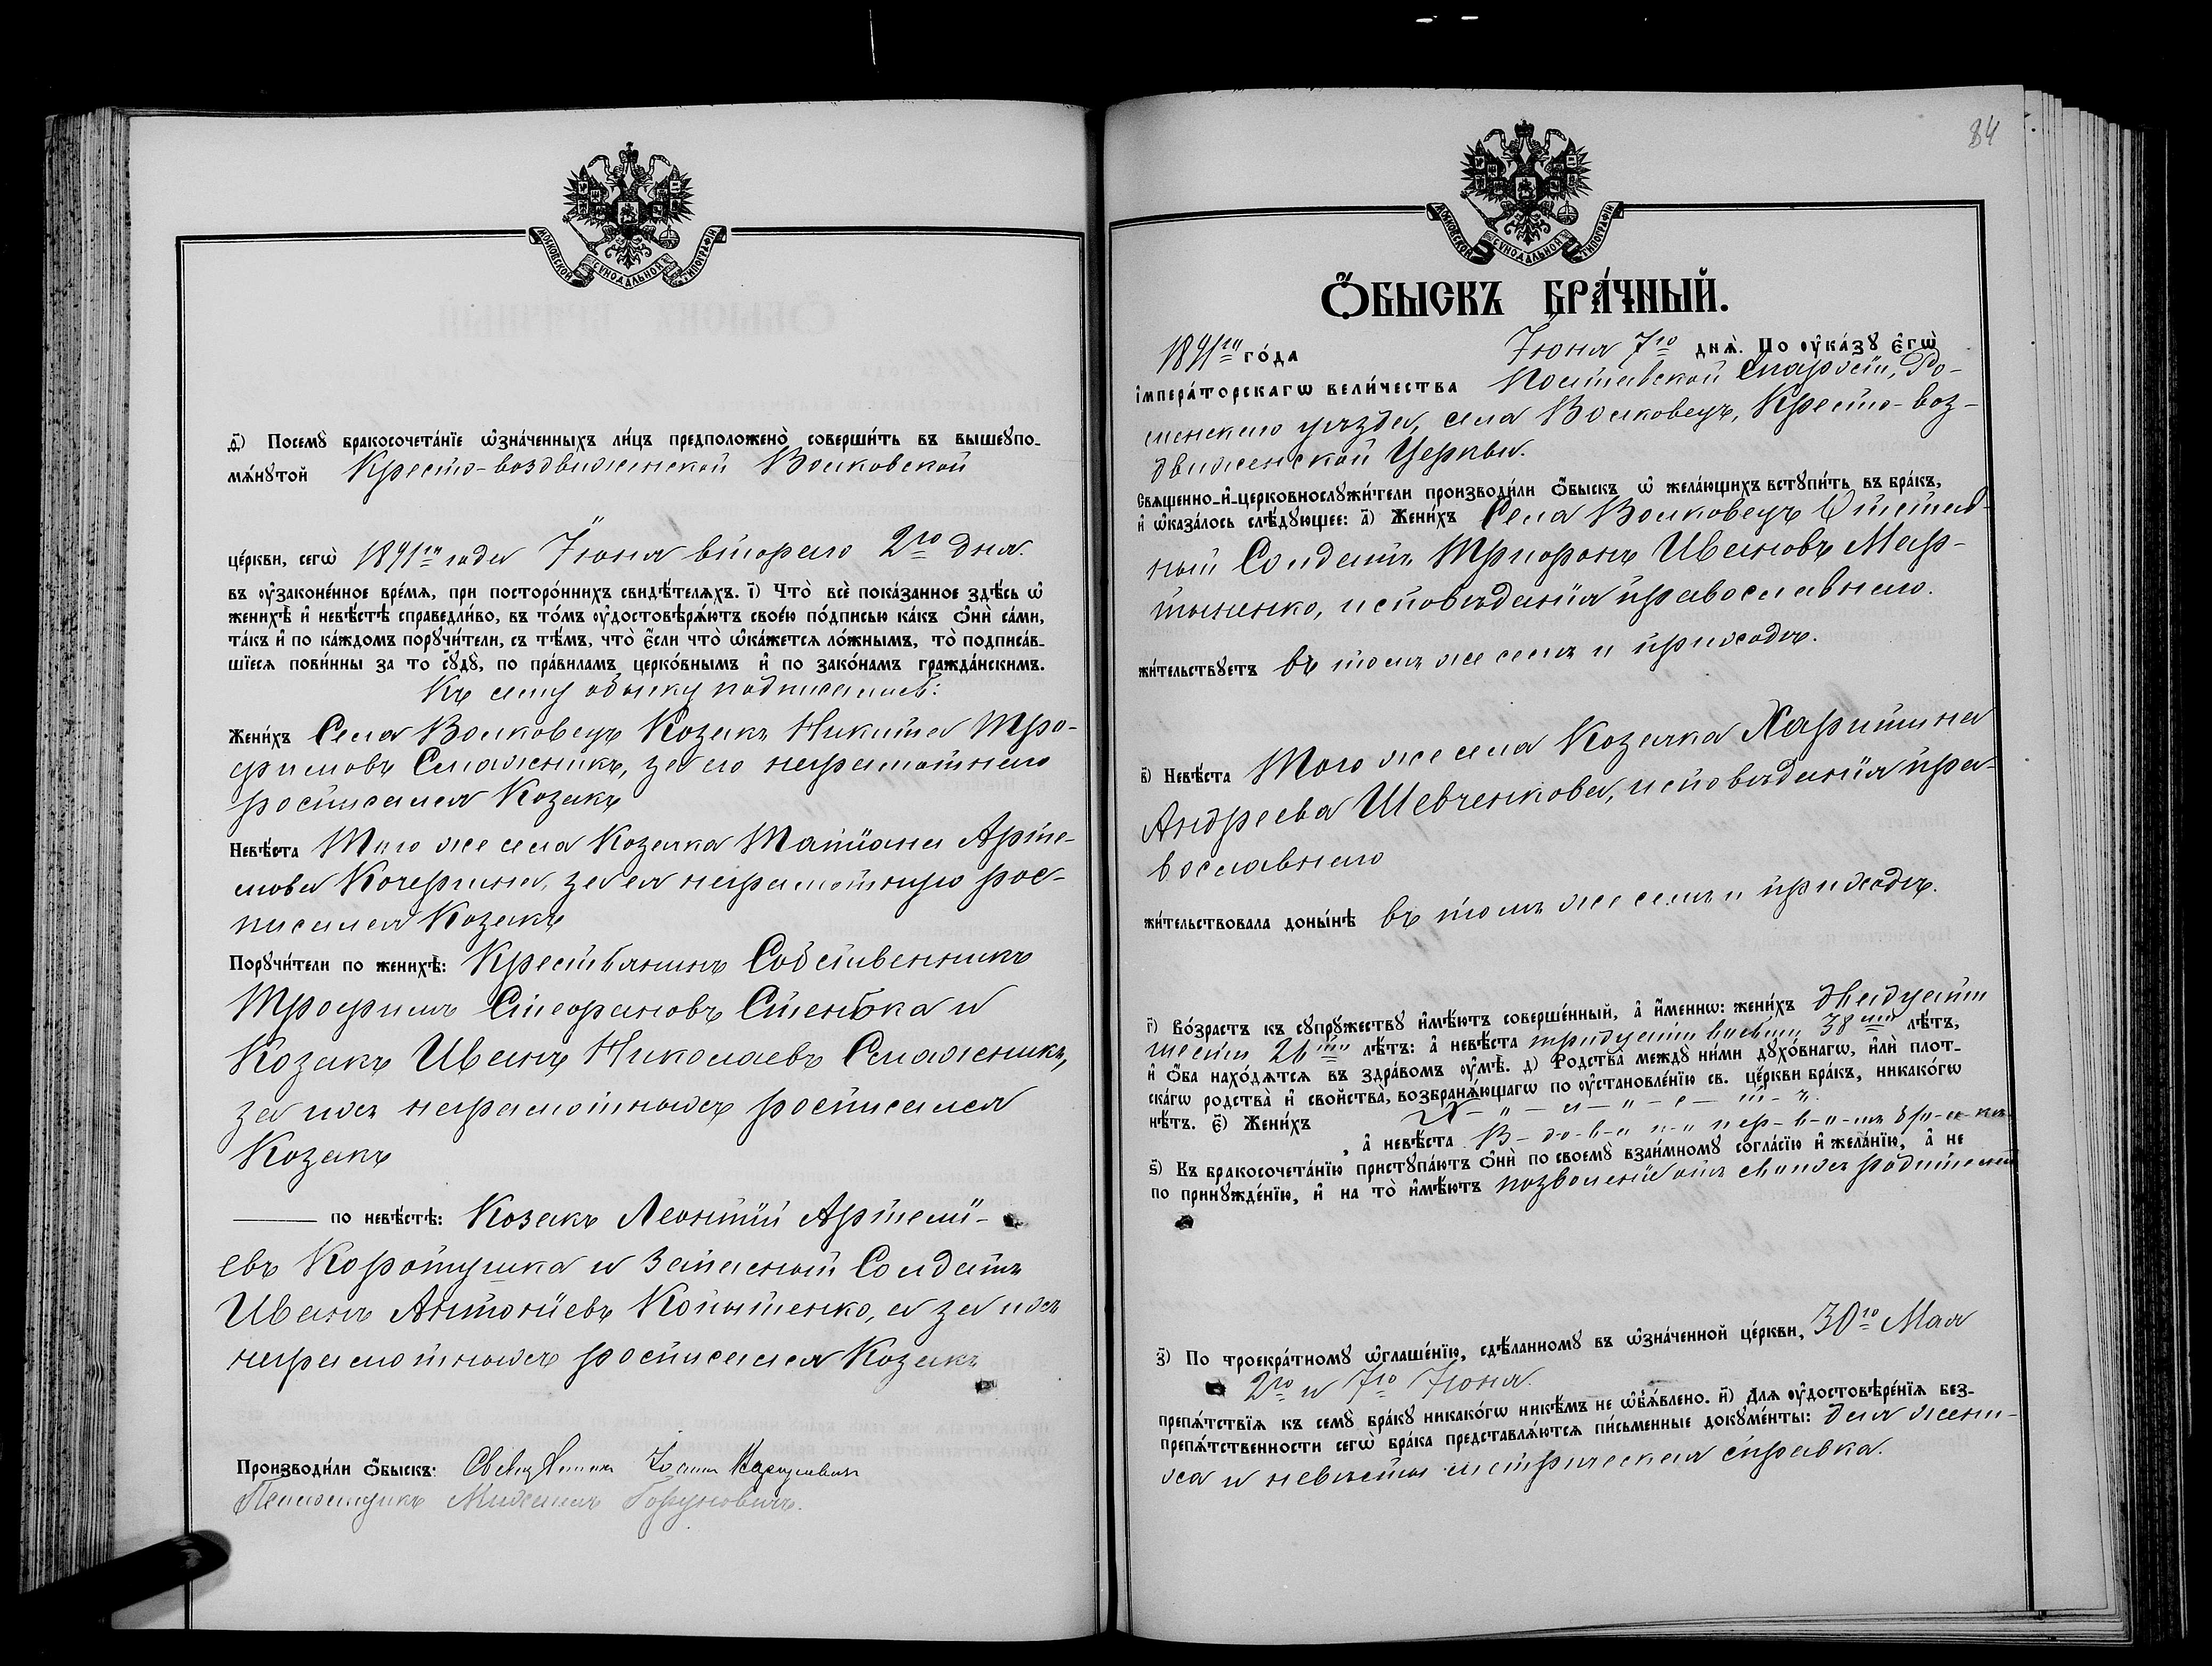 МОСКОВСКОЙ СѴНОДАЛЬНОЙ ТИПОГРАФІИ
Посемꙋ̀ бракосочета́нїе ѡ҆зна́ченныхъ ли́цъ предположено̀ соверши́ть въ вышеꙋпо-
мѧ́нꙋтой Кресто-воздвиженской Волковской
це́ркви, сегѡ̀ 1891го года Іюня второго 2го дня.
въ ᲂу҆зако́ненное вре́мѧ, при посторо́ннихъ свидѣ́телѧхъ. і҃) Что̀ всѐ пока́занное здѣ́сь ѡ҆
женихѣ̀ и҆ невѣ́стѣ справедли́во, въ то́мъ ᲂу҆достовѣрѧ́ютъ свое́ю по́дписью ка́къ ѻ҆нѝ са́ми,
та́къ и҆ по ка́ждомъ порꙋчи́тели, съ тѣ́мъ, что̀ є҆́сли что̀ ѡ҆ка́жетсѧ ло́жнымъ, то̀ подписа́в-
шїесѧ пови́нны за то сꙋдꙋ̀, по пра́виламъ церко́внымъ и҆ по зако́намъ гражда́нскимъ.
Къ сему обыску подписались:
Жени́хъ Села Волковецъ Козакъ Никита Тро-
фимовъ Смаженикъ, за его неграмотнаго
росписался Козакъ
Невѣ́ста Того же села Козачка Татіана Арте-
мова Кочергина, за ея неграмотную рос-
писался Козакъ
Порꙋчи́тели по женихѣ̀: Крестьянинъ Собственникъ
Трофимъ Стефановъ Стенька и
Козакъ Иванъ Николаевъ Смаженикъ,
за ихъ неграмотныхъ росписался
Козакъ
по невѣ́стѣ: Козакъ Леонтій Артемі-
евъ Коротушка и Запасный Солдатъ
Иванъ Антоніевъ Копытенко, а за ихъ
неграмотныхъ росписался Козакъ
Производи́ли ѻ҆́быскъ: Священникъ Іоаннъ
Псаломщикъ Михаилъ
84
МОСКОВСКОЙ СѴНОДАЛЬНОЙ ТИПОГРАФІИ
Ѻ҆́БЫСКЪ БРА́ЧНЫЙ.
1891го го́да Іюня 7го днѧ̀. По ᲂу҆ка́зꙋ є҆гѡ̀
і҆мпера́торскагѡ вели́чества Полтавской Епархіи, Ро-
менскаго уѣзда, села Волковецъ, Кресто-воз-
движенской Церкви.
Свѧщенно-и҆-церковнослꙋжи́тели производи́ли ѻ҆́быскъ ѡ҆ жела́ющихъ встꙋпи́ть въ бра́къ,
и҆ ѡ҆каза́лось слѣ́дꙋющее: а҃) Жени́хъ Села Волковецъ Отстав-
ный Солдатъ Трифонъ Ивановъ Мар-
тыненко, исповѣданія православнаго.
жи́тельствꙋетъ въ томъ же селѣ и приходѣ.
в҃) Невѣ́ста Того же села Козачка Харитина
Андреева Шевченкова, исповѣданія пра-
вославнаго
жи́тельствовала доны́нѣ въ томъ же селѣ и приходѣ.
г҃) Во́зрастъ къ сꙋпрꙋ́жествꙋ и҆мѣ́ютъ соверше́нный, а҆ и҆́меннѡ: жени́хъ двадцати
шести 26ти лѣ́тъ: а҆ невѣ́ста тридцати восьми 38ми лѣ́тъ,
и҆ ѻ҆́ба нахо́дѧтсѧ въ здра́вомъ ᲂу҆мѣ̀. д҃) Родства̀ междꙋ̀ ни́ми дꙋхо́внагѡ, и҆лѝ плот-
ска́гѡ родства̀ и҆ сво́йства, возбранѧ́ющагѡ по ᲂу҆становле́нїю св. це́ркви бра́къ, никако́гѡ
нѣ́тъ. є҃) Жени́хъ Х-о-л-о-с-т-ъ.
, а҆ невѣ́ста В-до-в-а п-о пер-в-о-мъ бр-а-кѣ
ѕ҃) Къ бракосочета́нїю пристꙋпа́ютъ ѻ҆нѝ по своемꙋ̀ взаи́мномꙋ согла́сїю и҆ жела́нїю, а҆ не
по принꙋжде́нїю, и҆ на то̀ и҆мѣ́ютъ позволеніе отъ своихъ родителей
з҃) По троекра́тномꙋ ѡ҆глаше́нїю, сдѣ́ланномꙋ въ ѡ҆зна́ченной це́ркви, 30го Мая
2го и 7го Іюня.
препѧ́тствїѧ къ семꙋ̀ бра́кꙋ никако́гѡ никѣ́мъ не ѡ҆б̾ѧ́влено. и҃) Длѧ̀ ᲂу҆достовѣре́нїѧ без-
препѧ́тственности сегѡ̀ бра́ка представлѧ́ютсѧ пи́сьменные докꙋме́нты: для жени-
ха и невѣсты метрическая справка.